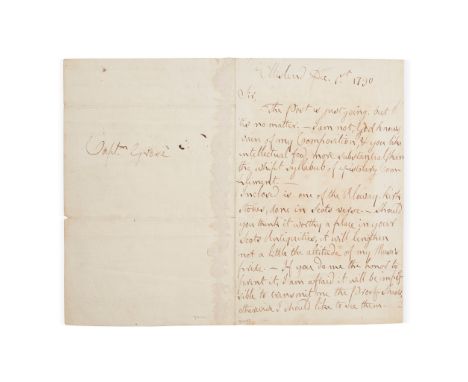 Captn Grose
Ellisland Dec. 1st 1790
Sir,
The Post is just going, but 't
is no matter. — I am not, God knows,
vain of my Composition, & you like
intellectual food more substantial than
the whipt Syllabub of epistolary Com-
pliment. —
Inclosed is one of the Aloway-kirk
Stories, done in Scots verse. — Should
you think it worthy a place in your
Scots Antiquities, it will lengthen
not a little the altitude of my Muse's
pride. — If you do me the honor to
print it, I am afraid it will be impos-
sible to transmit me the Proof-Sheets,
otherwise I should like to see them. —